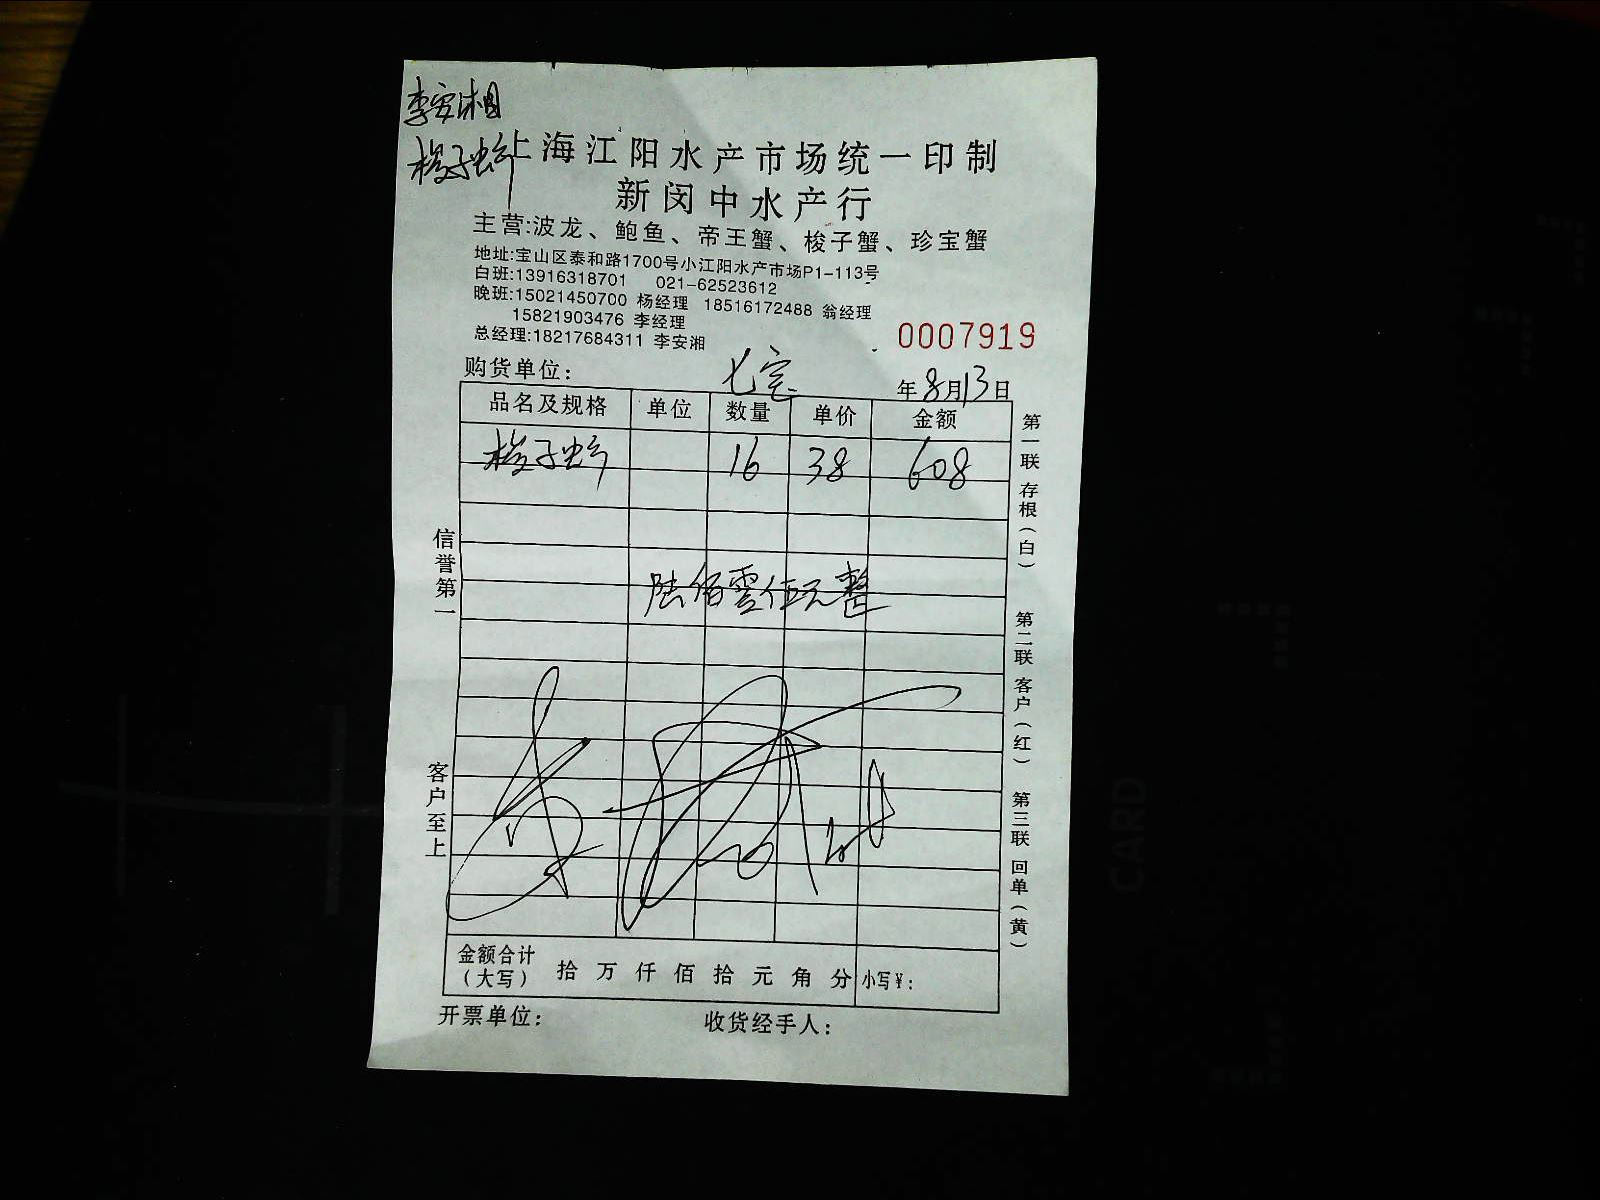 李安湘
梭子蚧
上海江阳水产市场统一印制
新闵中水产行
主营:波龙、鲍鱼、帝王蟹、梭子蟹、珍宝蟹
地址:宝山区泰和路1700号小江阳水产市场P1-113号
白班:13916318701 021-62523612
晚班:15021450700 杨经理 18516172488 翁经理
15821903476 李经理
总经理:18217684311 李安湘
0007919
购货单位: 七宝 年8月13日
品名及规格 单位 数量 单价 金额
梭子蚧 16 38 608
陆佰零伍元整
信誉第一
客户至上
第一联 存根(白) 第二联 客户(红) 第三联 回单(黄)
金额合计(大写) 拾万仟佰拾元角分 小写¥:
开票单位: 收货经手人: